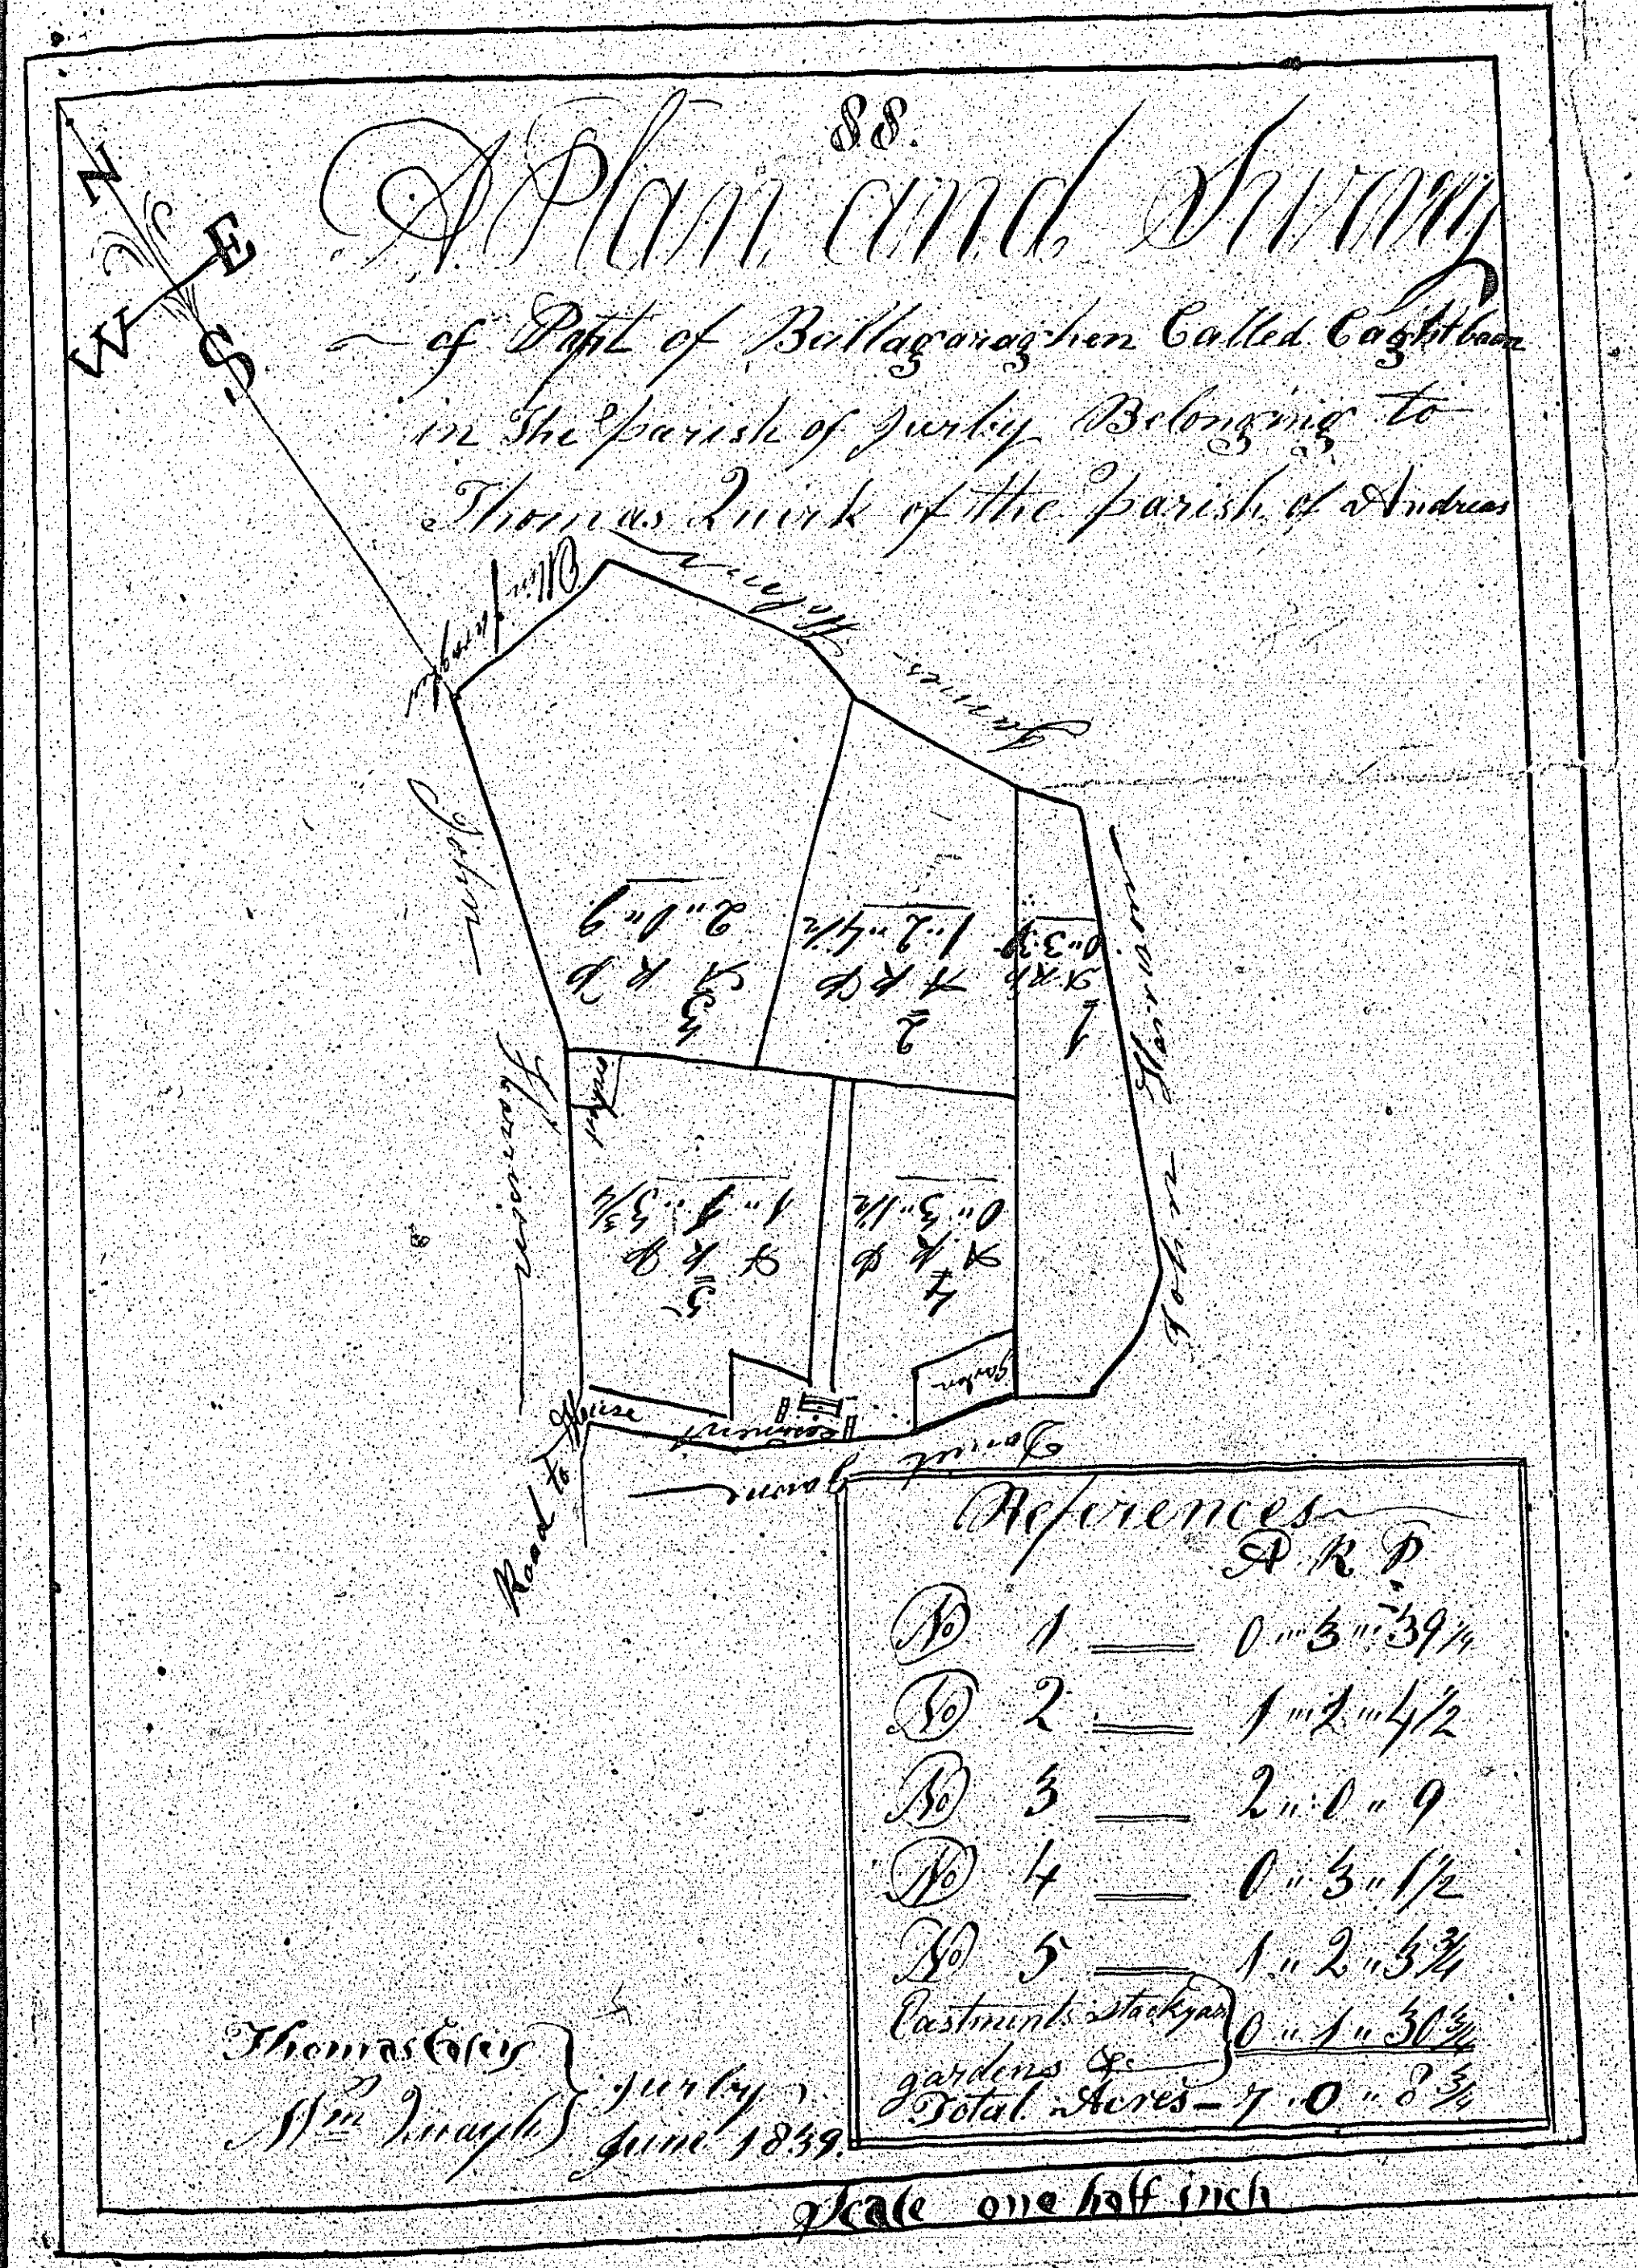 88.
A Plan and Survay
of Part of Ballagaraghen Called Caghtbaan
in The parish of Jurby Belonging to
Thomas Quirk of the parish of Andreas
N
E
W
S
James
John
Harrison
John
3
A R P
2 " 0 " 9
2
A R P
1 " 2 " 4 1/2
1
A R P
5
A R P
4
A R P
0 " 3 " 1 1/2
Garden
House
Easment
Road to
References
A R P
No 1 0 " 3 " 39 1/4
No 2 1 " 2 " 4 1/2
No 3 2 " 0 " 9
No 4 0 " 3 " 1 1/2
No 5 1 " 2 " 3 3/4
Eastments stackyard
gardens &c 0 " 1 " 30 3/4
Total Acres 7 " 0 " 8 3/4
Thomas
Wm Quayle
Jurby
June 1839.
Scale one half inch